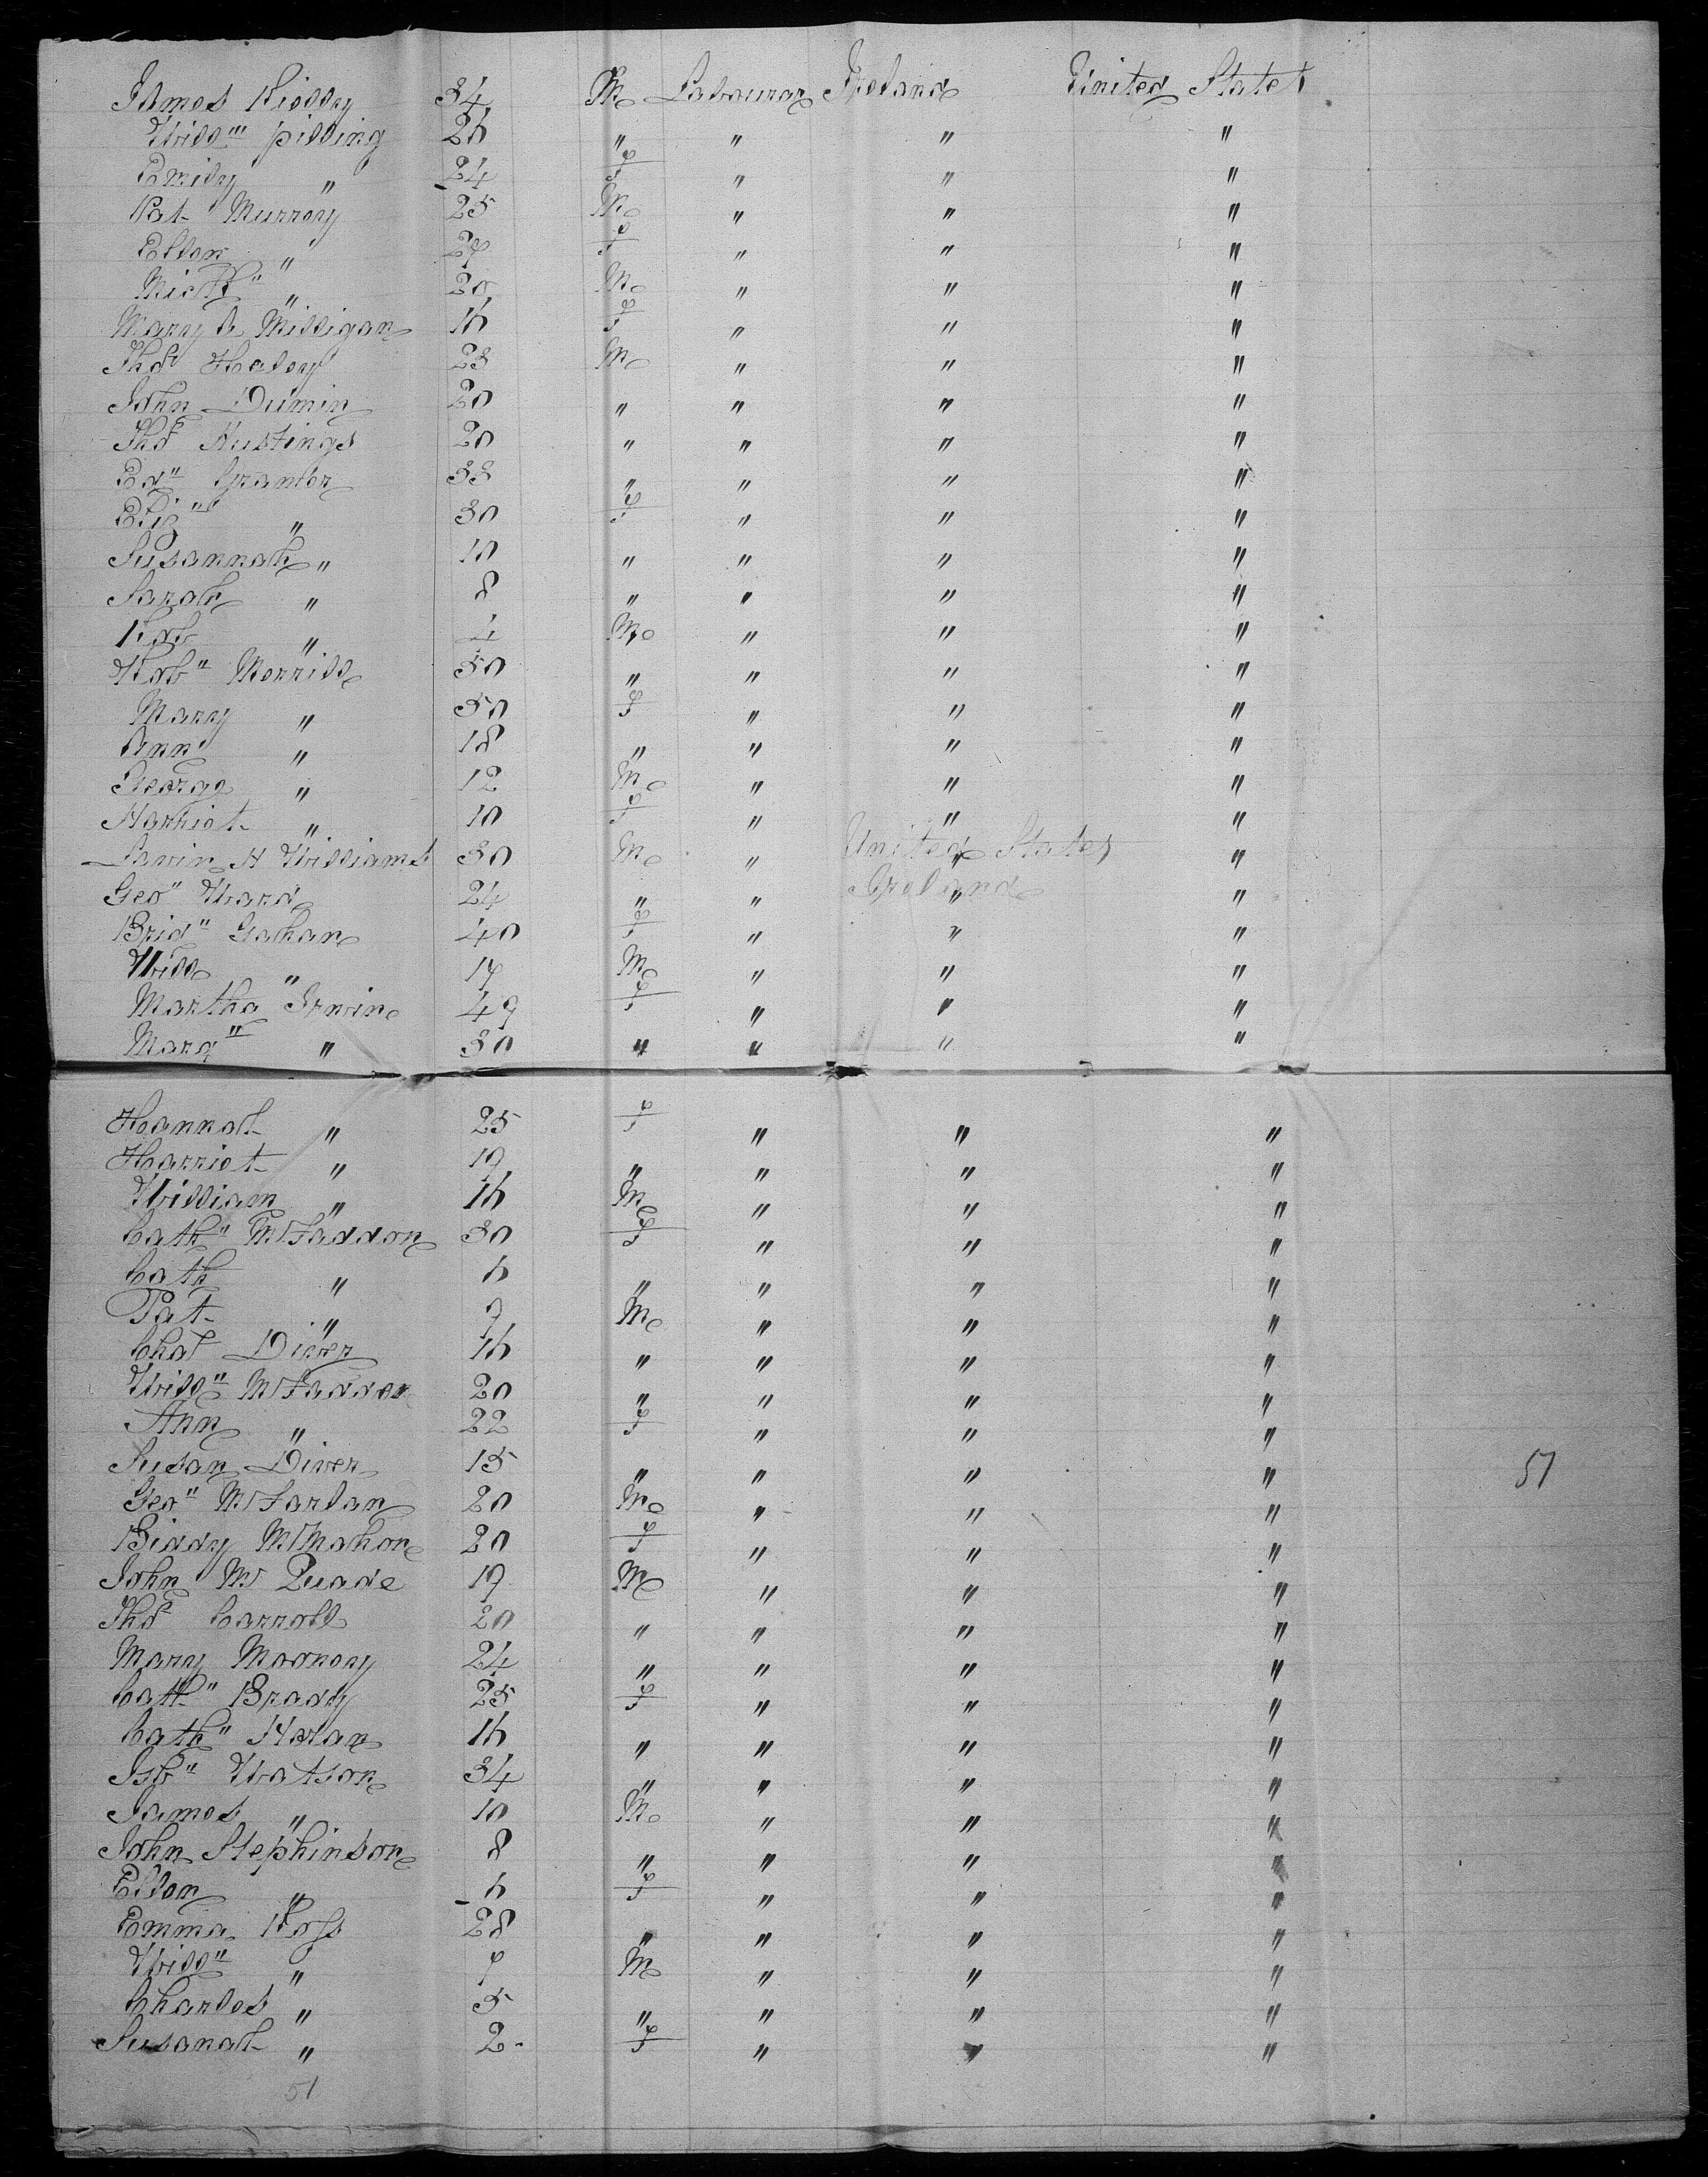 James Rielly 34 M Labourer Ireland United States
Will'm pilling 26 " " " "
Emily " 24 f " " "
Pat Murray 25 M " " "
Ellen " 27 f " " "
Mich'l " 20 M " " "
Mary A Milligan 16 f " " "
Tho's Haley 23 M " " "
John Dumin 20 " " " "
Tho's Hustings 20 " " " "
Ed'' Granler 33 " " " "
Eliz'' " 30 f " " "
Susannah " 10 " " " "
Sarah " 8 " " " "
Rob " 4 M " " "
Rob'' Merrill 50 " " " "
Mary " 50 f " " "
Ann " 18 " " " "
George " 12 M " " "
Harriet " 10 f " " "
Lavin H Williams 30 M " United States "
Geo'' Ward 24 " " Ireland "
Brid'' Gahan 40 f " " "
Will " 17 M " " "
Martha Irwin 49 f " " "
Marg'' " 30 " " " "
Hannah " 25 f " " "
Harriet " 19 " " " "
William " 16 M " " "
Cath'' McFadden 30 f " " "
Cath " 6 " " " "
Pat " 9 M " " "
Chas Diver 16 " " " "
Will'' McFadden 20 " " " "
Ann " 22 f " " "
Susan Diver 15 " " " "
Geo'' McFarlan 20 M " " "
Biddy McMahon 20 f " " "
John Mc Quade 19 M " " "
Tho's Carroll 20 " " " "
Mary 24 " " " "
Cath'' Brady 25 f " " "
Cath'' Horan 16 " " " "
Isb'' Watson 34 " " " "
James " 10 M " " "
John Stephinson 8 " " " "
Ellen " 6 f " " "
Emma Ross 28 " " " "
Will'' " 7 M " " "
Charles " 5 " " " "
Susanah " 2 f " " "
51
51